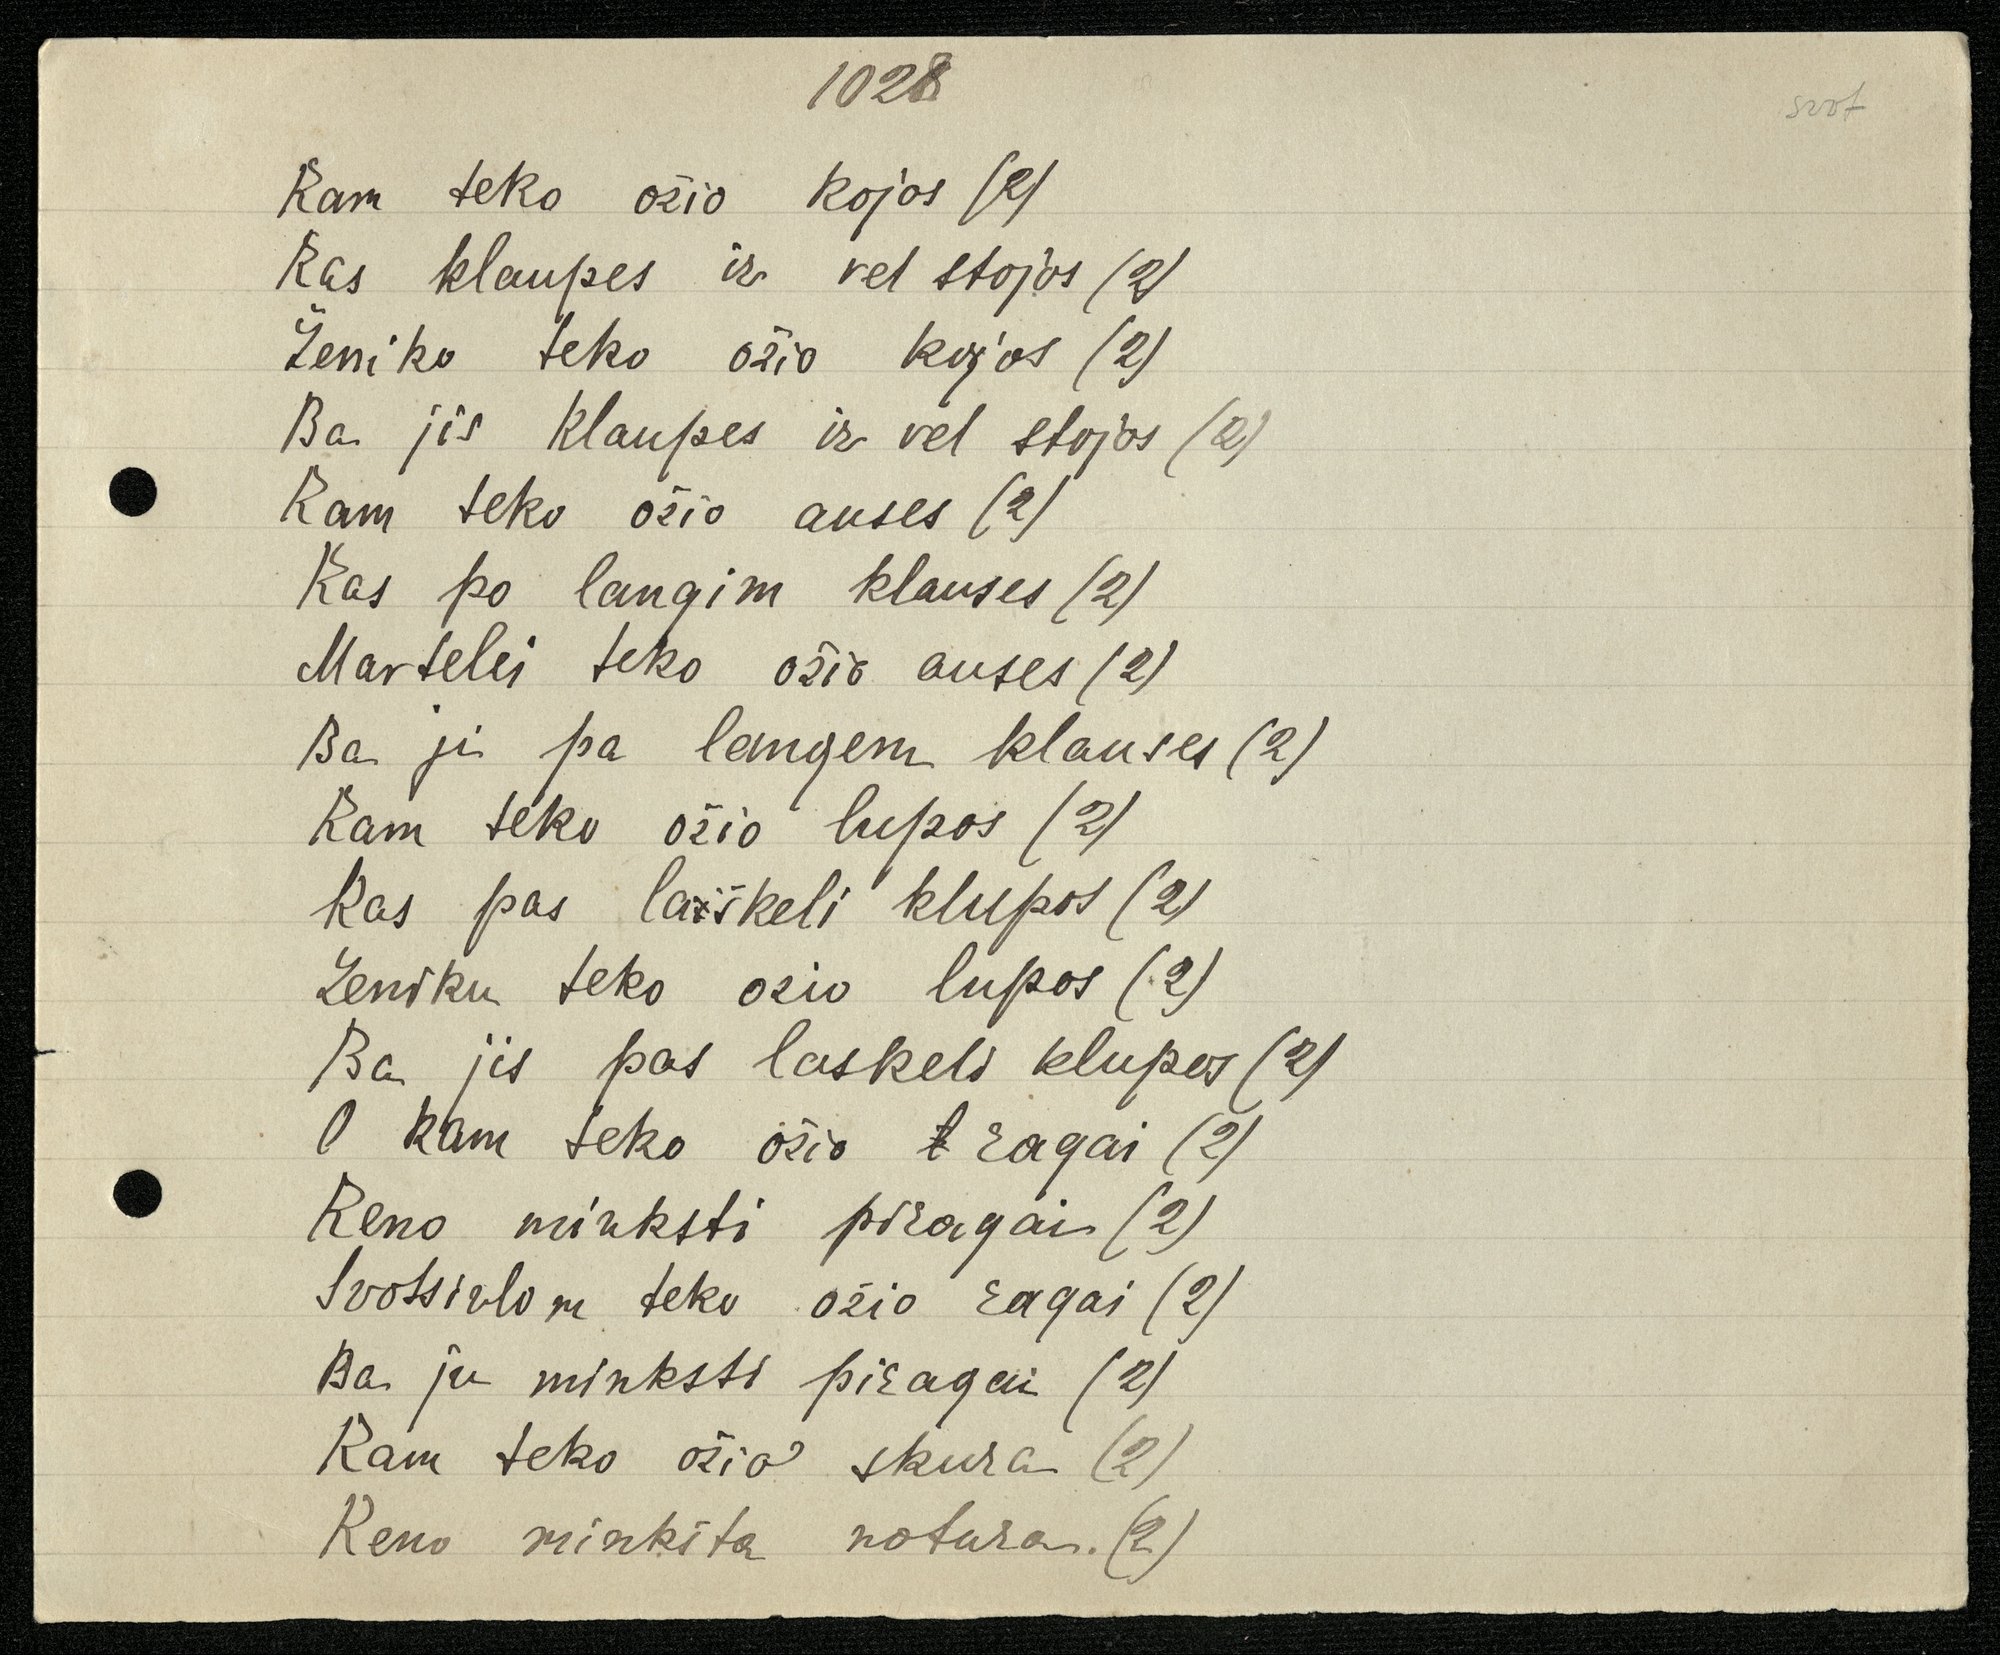 1028
svot
Kam teko ožio kojos (2)
Kas klaupes ir vel stojos (2)
Ženiko teko ožio kojos (2)
Ba jis klaupes ir vel stojos (2)
Kam teko ožio auses (2)
Kas po langim klauses (2)
Martelei teko ožio auses (2)
Ba ji pa langem klauses (2)
Kam teko ožio lupos (2)
Kas pas laiškeli klupos (2)
Zeniku teko ozio lupos (2)
Ba jis pas laskeli klupos (2)
O kam teko ožio t ragai (2)
Keno minksti piragai (2)
Svotsivlom teko ožio ragai (2)
Ba ju minksti piragai (2)
Kam teko ožio skura (2)
Keno minkšta notura. (2)